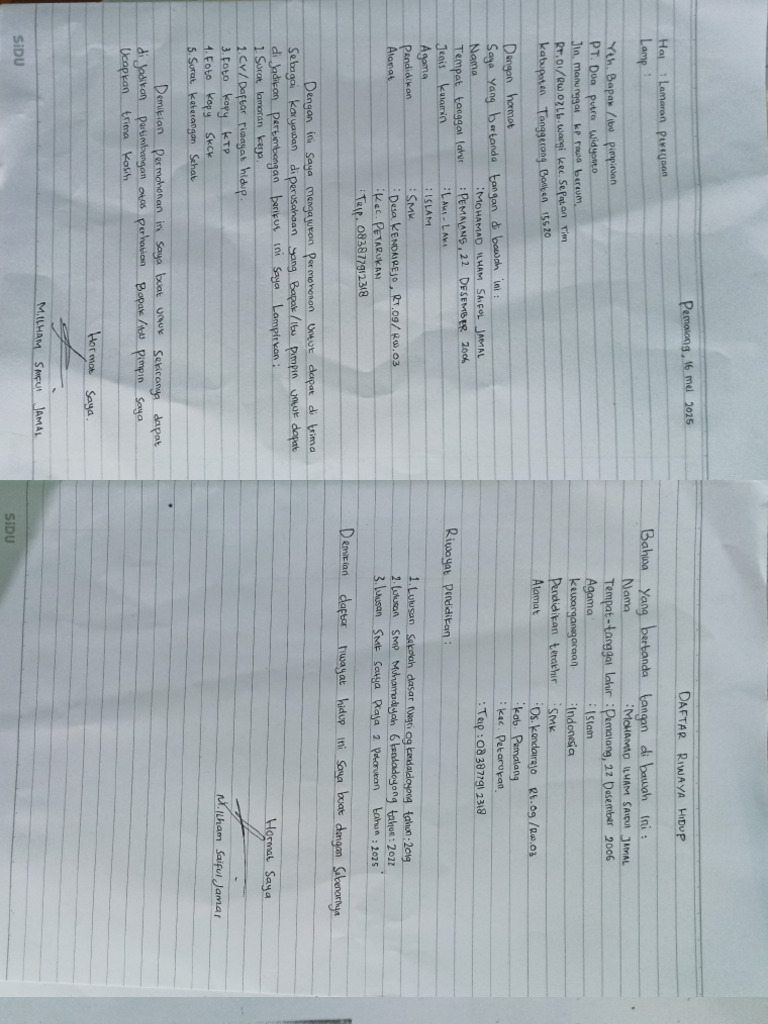 Pemalang, 16 mei 2025
Hal : Lamaran pekerjaan
Lamp :
Yth. Bapak/ibu pimpinan
PT. Dua putra widyono
Jln. manunggal kp rawa
Rt.01/Rw.02 kec sepatan tim
kabupaten Tanggerang Banten 15520
Dengan hormat
Saya yang bertanda tangan di bawah ini :
Nama : MOHAMAD ILHAM SAIFUL JAMAL
Tempat tanggal lahir : PEMALANG, 22 DESEMBER 2006
Jenis kelamin : LAKI-LAKI
Agama : ISLAM
Pendidikan : SMK
Alamat : Desa KENDALREJO, RT.09/RW.03
: Kec. PETARUKAN
: Telp. 083877912318
Dengan ini saya mengajukan Permohonan Untuk dapat di trima
Sebagai karyawan diperusahaan yang Bapak/ibu pimpin untuk dapat
di jadikan pertimbangan berikut ini saya Lampirkan :
1. Surat lamaran kerja.
2. CV/Daftar riwayat hidup.
3. Foto kopy KTP
4. Foto kopy SKCK
5. Surat keterangan Sehat
Demikian Permohonan ini saya buat untuk Sekiranya dapat
di jadikan pertimbangan atas perhatian Bapak/ibu pimpin saya
Ucapkan trima kasih
Hormat saya.
M.ILHAM SAIFUL JAMAL
SiDU
DAFTAR RIWAYA HIDUP
Bahwa yang bertanda tangan di bawah ini :
Nama : MOHAMAD ILHAM SAIFUL JAMAL
Tempat-tanggal lahir : Pemalang, 22 Desember 2006
Agama : Islam
kewarganegaraan : Indonesia
Pendidikan terakhir : SMK
Alamat : Ds. Kendalrejo Rt.09/Rw.03
: kab Pemalang
: kec Petarukan.
: Telp : 083877912318
Riwayat Pendidikan :
1. Lulusan Sekolah dasar Negri 09 kendaldoyong tahun : 2019
2. Lulusan SMP Muhamadiyah 6 kendaldoyong tahun : 2022
3. Lulusan SMK Satya Praja 2 Petarukan tahun : 2025
Demikian daftar riwayat hidup ini saya buat dengan Sbenarnya
Hormat Saya
M. Ilham Saiful Jamal
SiDU